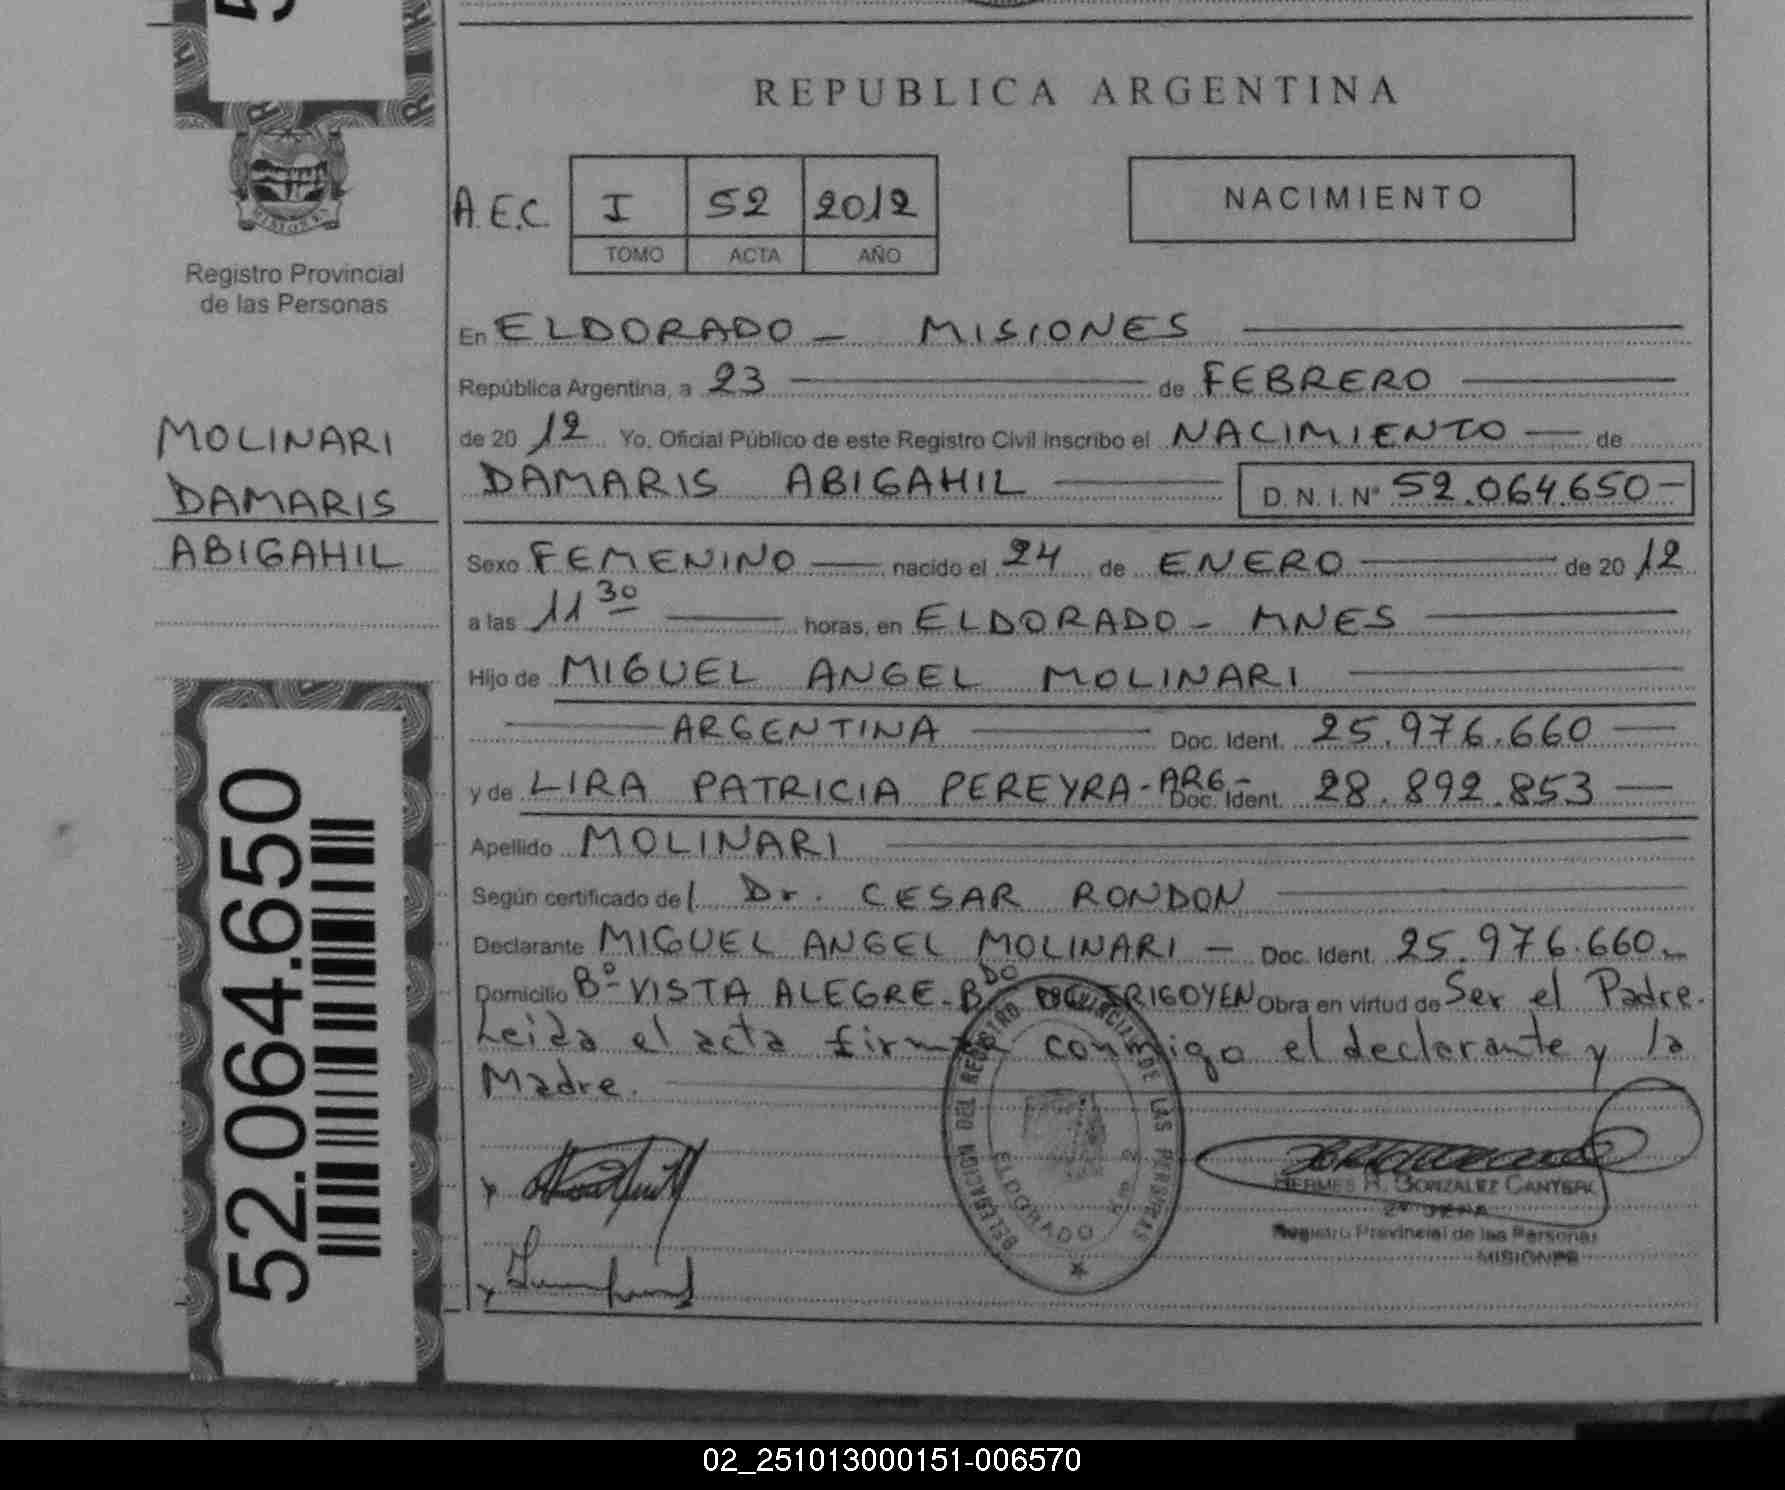 REPUBLICA ARGENTINA
A.E.C. I 52 2012
TOMO ACTA AÑO
NACIMIENTO
MISIONES
Registro Provincial
de las Personas
MOLINARI
DAMARIS
ABIGAHIL
52.064.650
En ELDORADO - MISIONES
República Argentina, a 23 de FEBRERO
de 2012 Yo. Oficial Público de este Registro Civil inscribo el NACIMIENTO de
DAMARIS ABIGAHIL D.N.I. N° 52.064.650-
Sexo FEMENINO nacido el 24 de ENERO de 2012
a las 11 30 horas, en ELDORADO - MNES
Hijo de MIGUEL ANGEL MOLINARI
ARGENTINA Doc. Ident. 25.976.660
y de LIRA PATRICIA PEREYRA - ARG - Doc. Ident. 28.892.853
Apellido MOLINARI
Según certificado de Dr. CESAR RONDON
Declarante MIGUEL ANGEL MOLINARI - Doc. Ident. 25.976.660
Domicilio B° VISTA ALEGRE - Bdo DE IRIGOYEN Obra en virtud de Ser el Padre.
Leida el acta firma conmigo el declarante y la
Madre.
DELEGACION DEL REGISTRO PROVINCIAL DE LAS PERSONAS
ELDORADO Km 2
HERMES R. GONZALEZ
2° JEFA
Registro Provincial de las Personas
MISIONES
02_251013000151-006570